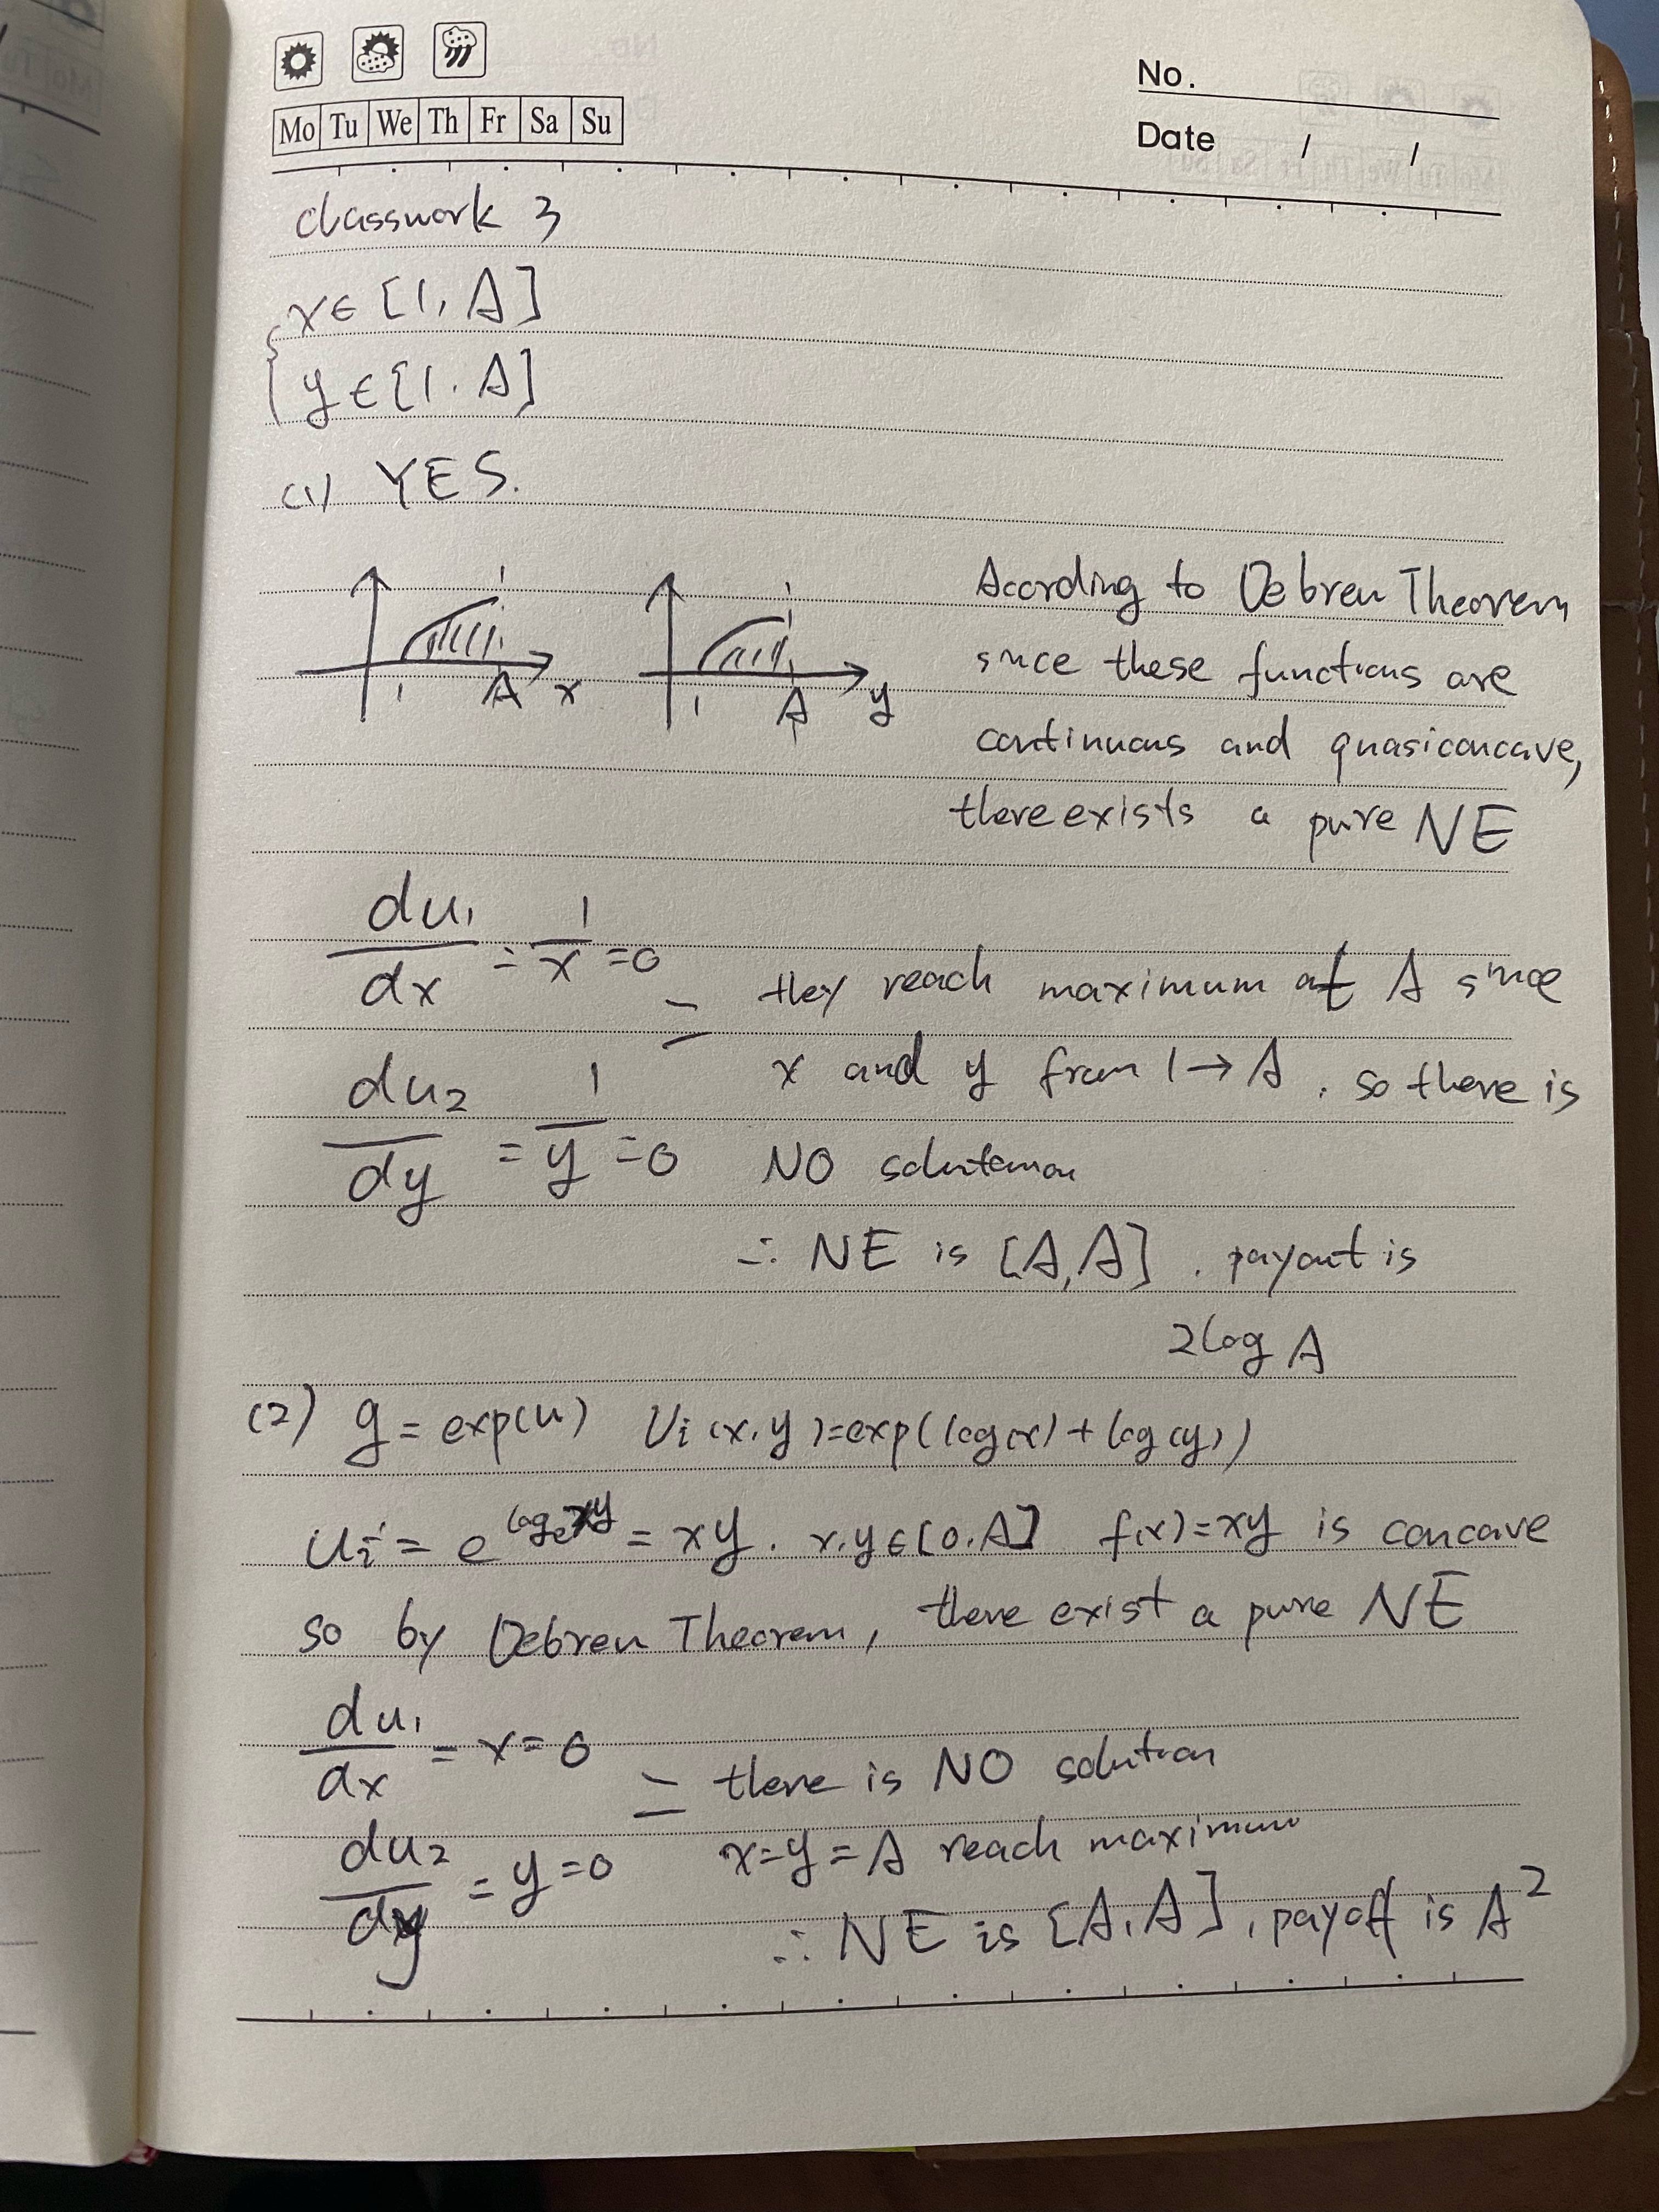 No.
Mo Tu We Th Fr Sa Su
Date / /
classwork 3
x∈ [1, A]
y ∈ [1. A]
(1) YES.
Acording to Debreu Theorem
since these functions are
continuous and quasiconcave,
there exists a pure NE
1 A x
1 A y
du₁/dx = 1/x = 0
they reach maximum at A since
x and y from 1→A . so there is
du₂/dy = 1/y = 0
NO
∴ NE is [A,A] . payout is
2log A
(2) g = exp(u) Ui(x.y)=exp(log(x)+log(y))
Ui = e^(logₑxy) = xy. x.y∈[0.A] f(x)=xy is concave
so by Debreu Theorem, there exist a pure NE
du₁/dx = x = 0
there is NO solution
du₂/dy = y = 0
x=y=A reach maximum
∴ NE is [A.A], payoff is A²